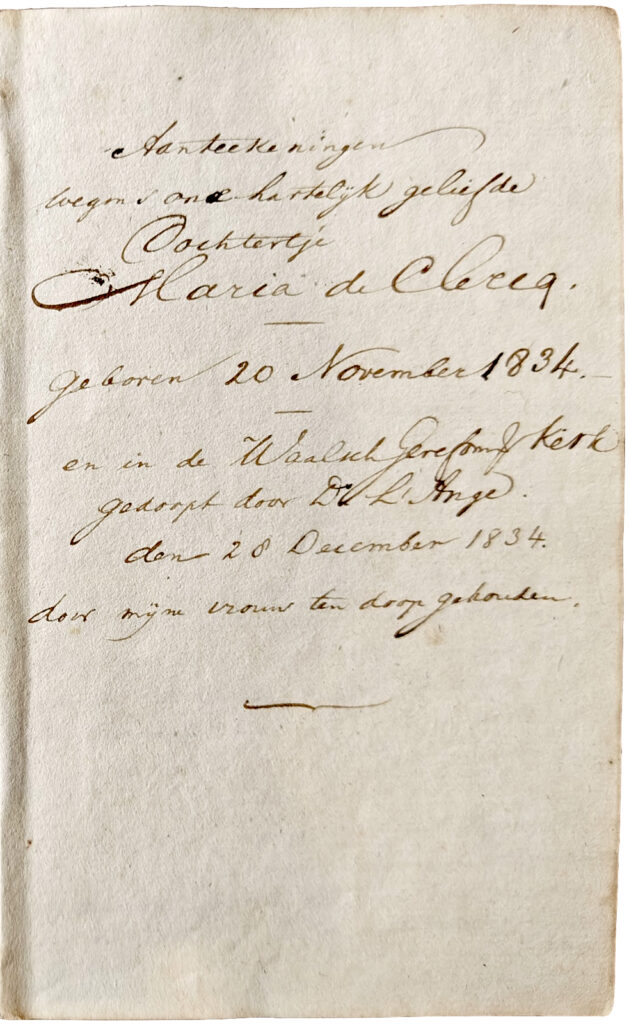 Aanteekeningen
wegens onze hartelijk geliefde
Dochtertje
Maria de Clercq.
geboren 20 November 1834.—
en in de Waalsch Gereform^d Kerk
gedoopt door Ds L'Ange.
den 28 December 1834.
door mijne vrouw ten doop gehouden.